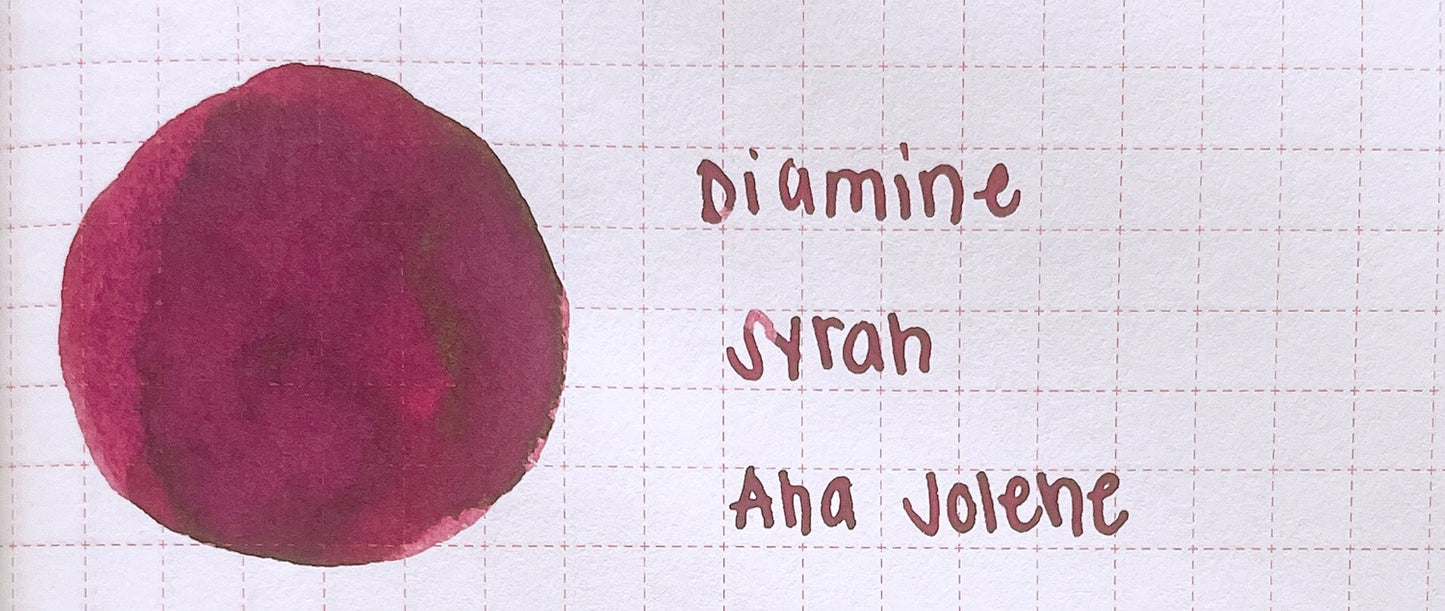 Diamine
Syrah
Ana Jolene